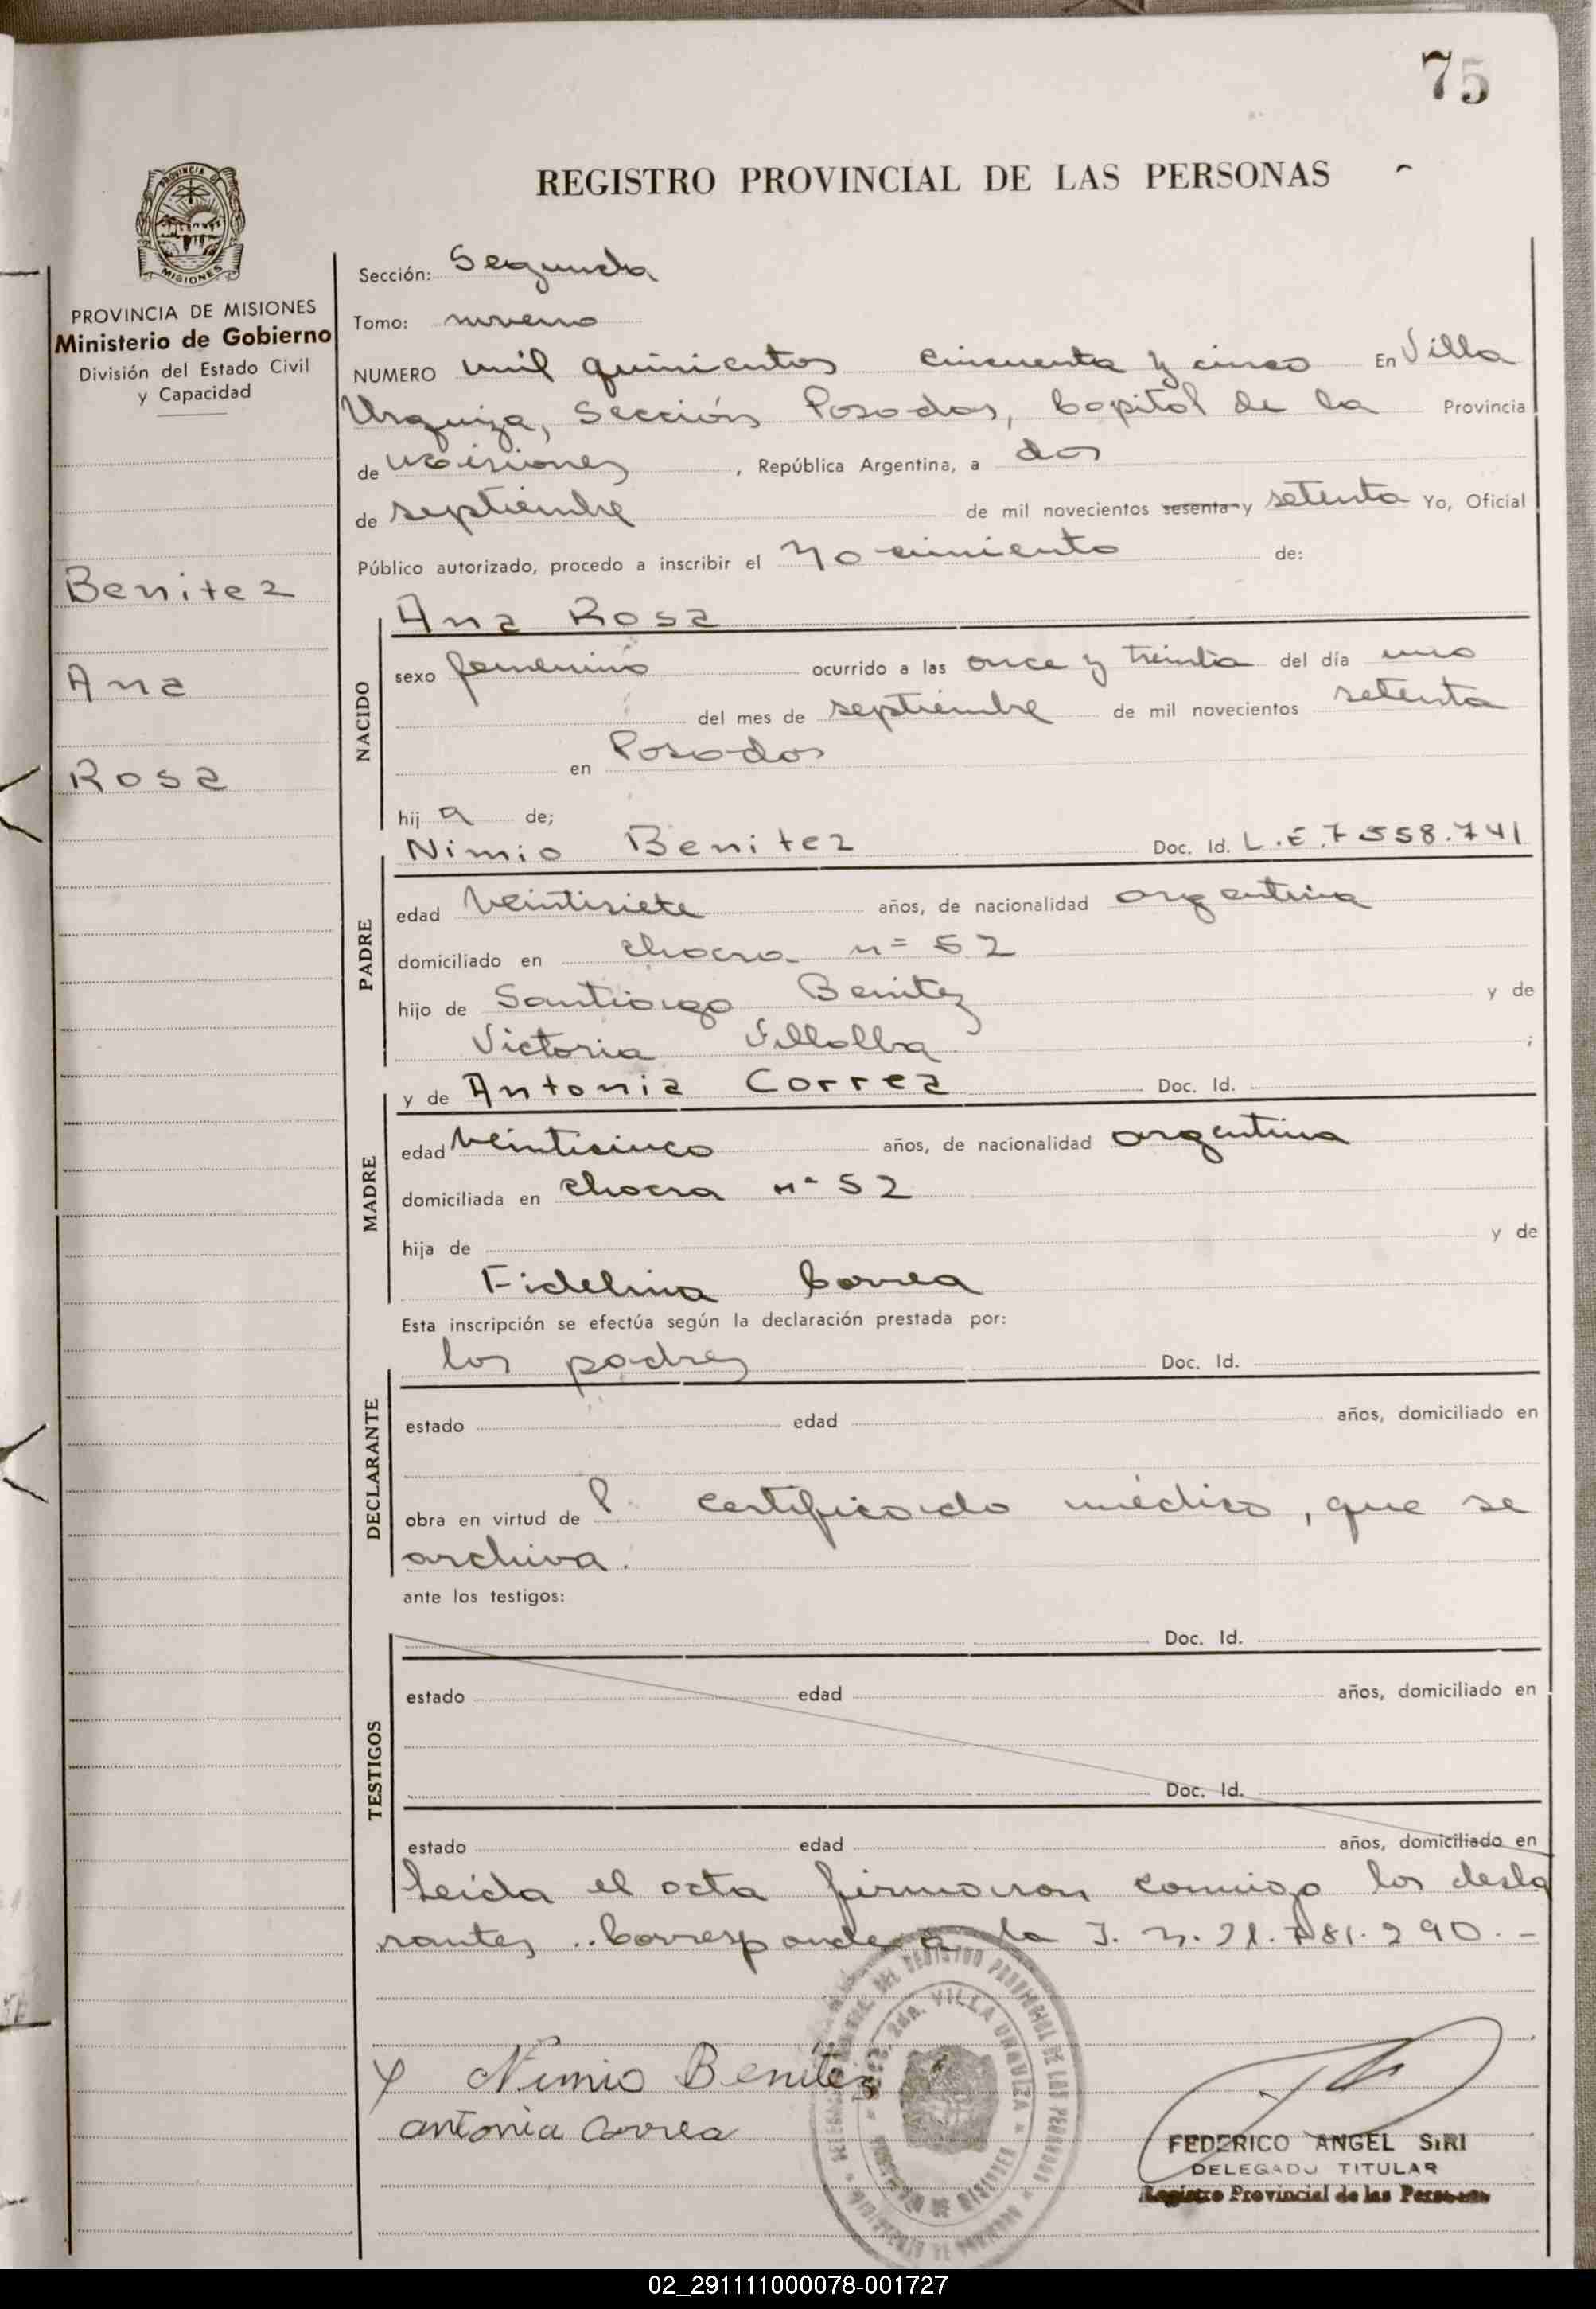 75
REGISTRO PROVINCIAL DE LAS PERSONAS
PROVINCIA DE MISIONES
Ministerio de Gobierno
División del Estado Civil
y Capacidad
Benitez
Ana
Rosa
Sección: Segunda
Tomo: noveno
NUMERO mil quinientos cincuenta y cinco En Villa
Urquiza, Sección Posadas, Capital de la Provincia
de Misiones, República Argentina, a dos
de septiembre de mil novecientos sesenta y setenta Yo, Oficial
Público autorizado, procedo a inscribir el nacimiento de:
NACIDO
Ana Rosa
sexo femenino ocurrido a las once y treinta del día uno
del mes de septiembre de mil novecientos setenta
en Posadas
hij a de;
PADRE
Nimio Benitez Doc. Id. L.E.7558.741
edad veintisiete años, de nacionalidad argentina
domiciliado en chacra nº 52
hijo de Santiago Benitez y de
Victoria Villalba ;
MADRE
y de Antonia Correa Doc. Id.
edad veinticinco años, de nacionalidad argentina
domiciliada en chacra nº 52
hija de y de
Fidelina Correa
Esta inscripción se efectúa según la declaración prestada por:
DECLARANTE
los padres Doc. Id.
estado edad años, domiciliado en
obra en virtud de l certificado médico, que se
archiva.
ante los testigos:
TESTIGOS
Doc. Id.
estado edad años, domiciliado en
Doc. Id.
estado edad años, domiciliado en
Leída el acta firmaron conmigo los decla
rantes.. Corresponde a la I. N. 21.781.290.-
VILLA URQUIZA
Nimio Benitez
antonia Correa
FEDERICO ANGEL SIRI
DELEGADO TITULAR
Registro Provincial de las Personas
02_291111000078-001727